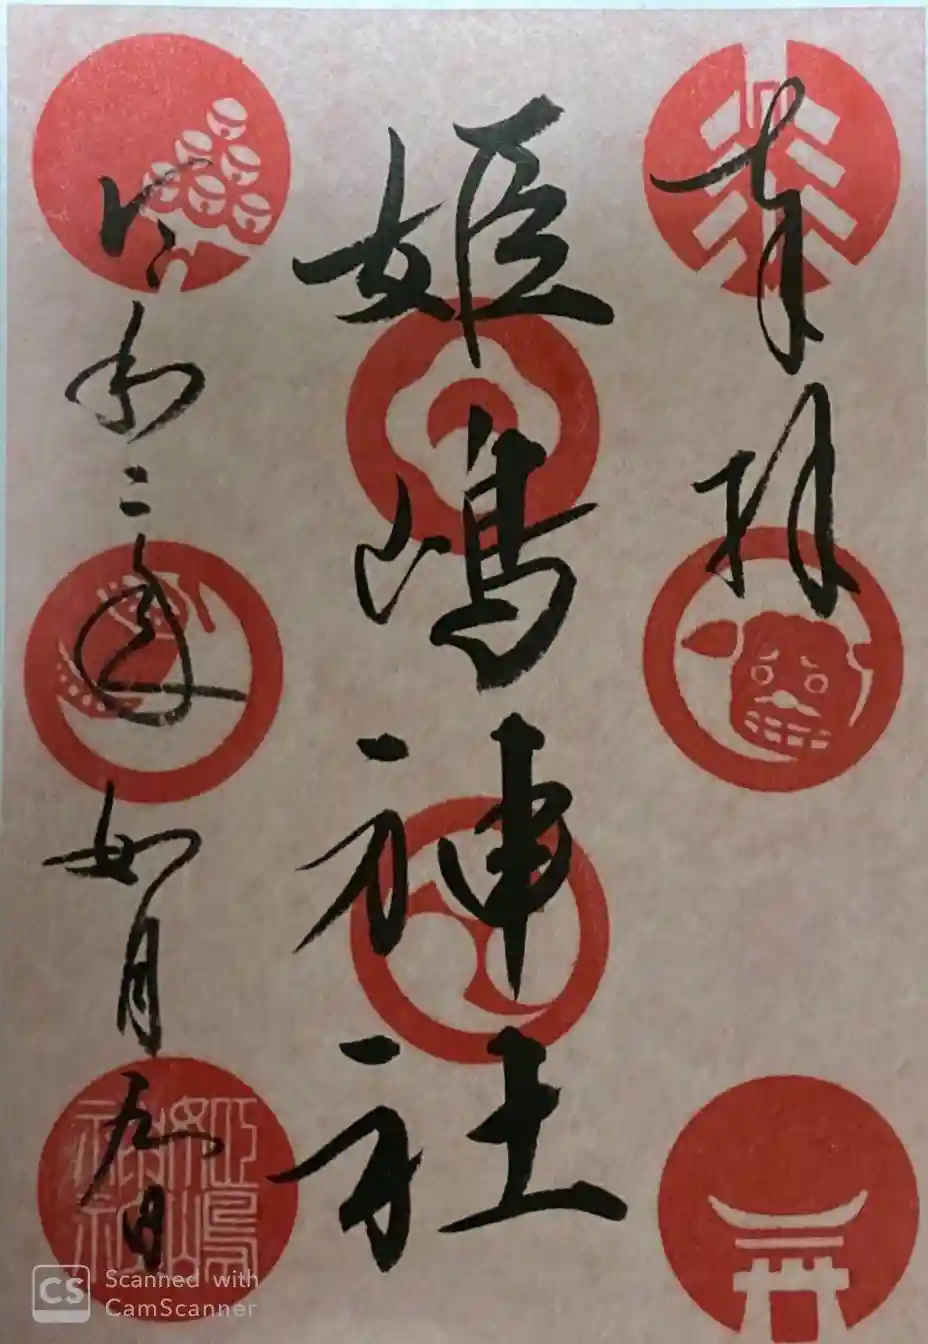 奉拝
姫嶋神社
令和二年如月九日
姫嶋神社
Scanned with
CamScanner
CS